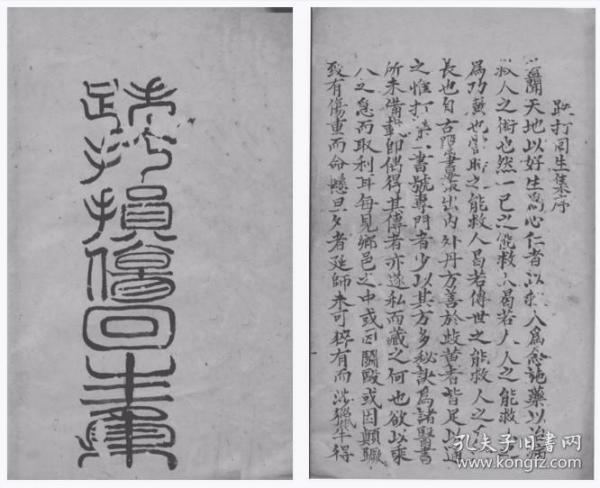 跌打損傷回生集
跌打回生集序
聞天地以好生為心仁者以救人為念施藥以治病
救人之術也然一己之能救人曷若人人之能救
為功也當時之能救人曷若傳世之能救人之
長也自古醫書叠出內外丹方善於岐黃者皆足以通
之惟打一書號專門者少以其方多秘訣為諸醫書
所未備載即偶得其傳者亦遂私而藏之何也欲以乘
人之急而取利耳每見鄉邑之中或因鬪毆或因顛蹶
致有傷重而命懸旦夕者延師未可猝有而得
孔夫子旧书网
www.kongfz.com